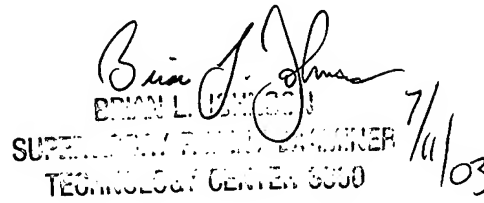 Brian L. Johnson
BRIAN L. JOHNSON
SUPERVISORY PATENT EXAMINER 7/11/03
TECHNOLOGY CENTER